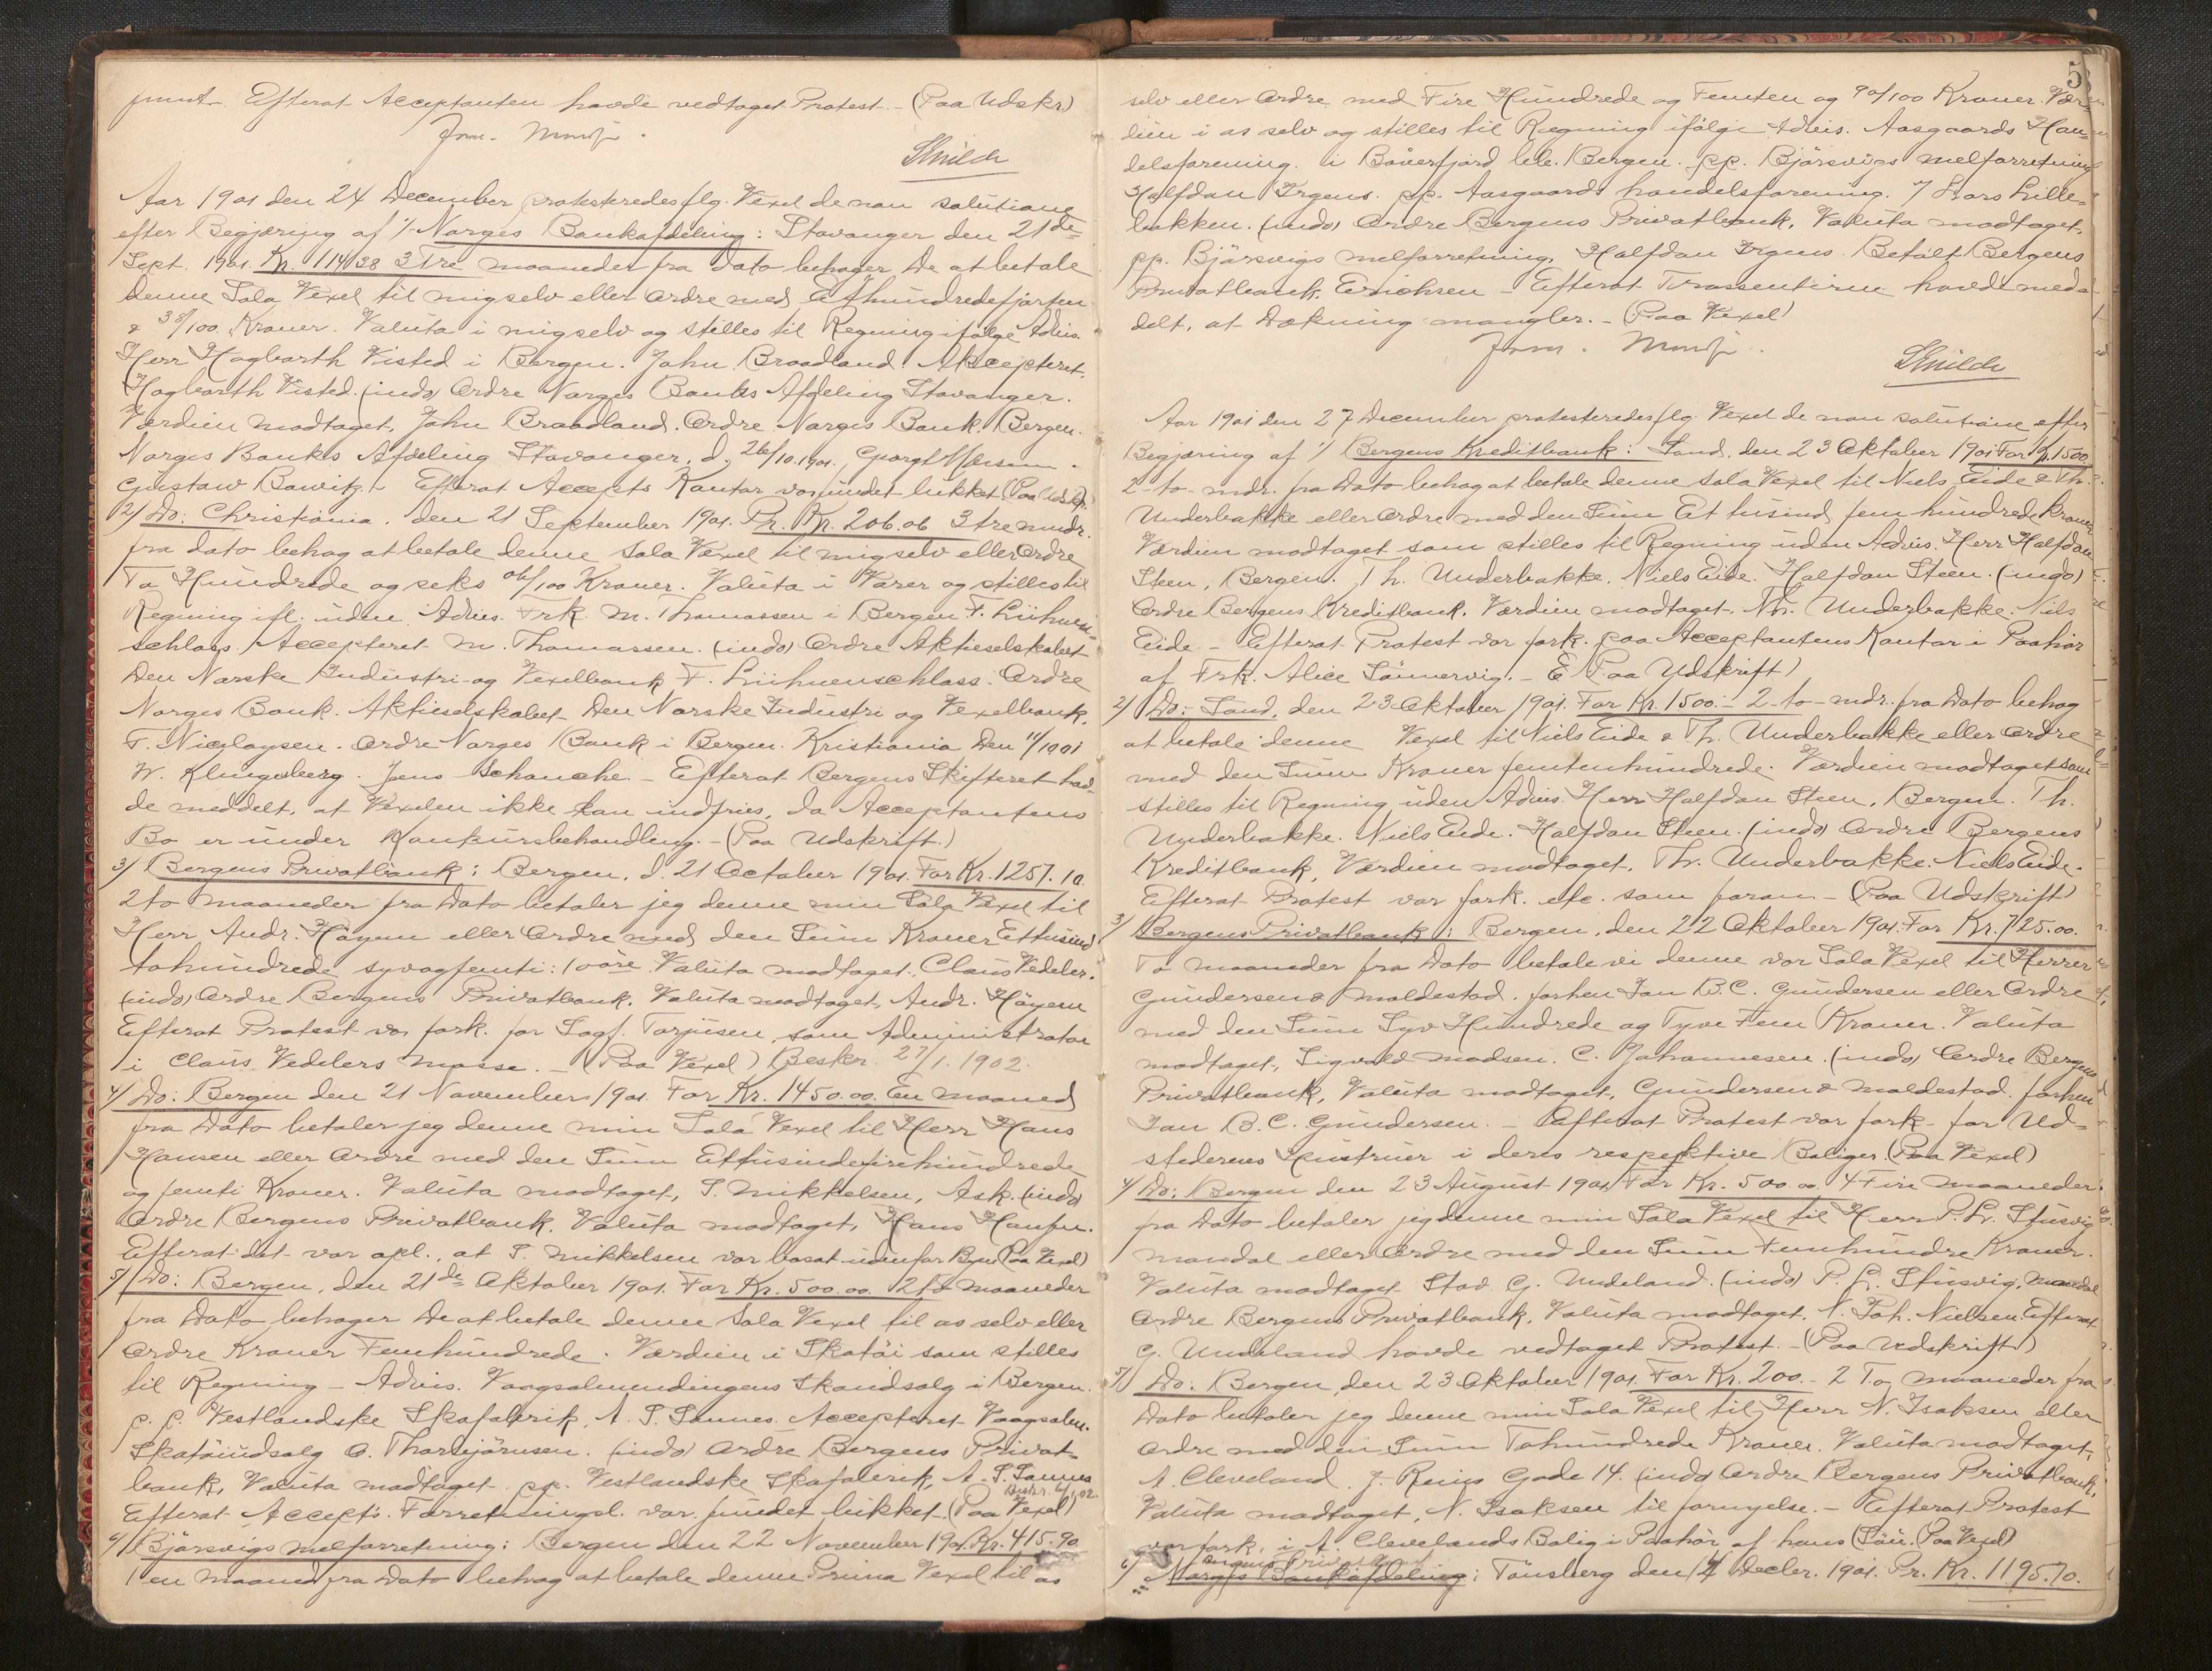 Efterat Acceptanten havde vedtaget Protest. - (Paa Udskr)
Aar 1901 den 24 December protesteredes flg. Vexel de non solutione
efter Begjæring af 1/ Norges Bankafdeling: Stavanger den 21de
Sept. 1901. Kr. 114.38 3 Tre maaneder fra dato behager De at betale
denne Sola Vexel til mig selv eller Ordre med Ethundredefjorten
& 38/100 Kroner. Valuta i mig selv og stilles til Regning ifølge Advis.
Herr Hagbarth Visted i Bergen. John Braadland. Akcepteret.
Hagbarth Visted. (indo) Ordre Norges Banks Afdeling Stavanger.
Værdien modtaget, John Braadland. Ordre Norges Bank, Bergen.
Norges Banks Afdeling Stavanger, d. 26/10.1901.
Gustaw Bawitz. - Efterat Accepts Kontor var fundet lukket (Paa Udskr.)
2/ Do: Christiania. den 21 September 1901. Pr. Kr. 206.06 3 tre mndr.
fra dato behag at betale denne Sola Vexel til mig selv eller Ordre
To Hundrede og seks 06/100 Kroner. Valuta i Varer og stilles til
Regning ifl. uden Advis. Frk. M. Thomassen i Bergen F. Lühnen-
schloss. Accepteret M. Thomassen. (indo) Ordre Aktieselskabet
Den Norske Industri- og Vexelbank F. Lühnenschloss. Ordre
Norges Bank. Aktieselskabet Den Norske Industri og Vexelbank.
F. Nicolaysen. Ordre Norges Bank i Bergen. Kristiania Den 11/1001
W. Klingenberg. Jens Schanche. - Efterat Bergens Skifteret hav-
de meddelt, at Vexelen ikke kan indfries, da Acceptantens
Bo er under Konkursbehandling. - (Paa Udskrift.)
3/ Bergens Privatbank: Bergen, d. 21 October 1901. For Kr. 1257.10.
2 to maaneder fra Dato betaler jeg denne min Sola Vexel til
Herr Andr. Höyem eller Ordre med den Sum Kroner Ettusind
tohundrede syvogfemti: 10 øre Valuta modtaget. Claus Vedeler.
(indo) Ordre Bergens Privatbank. Valuta modtaget, Andr. Höyem
Efterat Protest var fork. for Sagf. Torjusen, som Administrator
i Claus Vedelers Masse. - (Paa Vexel) Beskr. 27/1. 1902.
4/ Do: Bergen den 21 November 1901. For Kr. 1450.00. En maaned
fra Dato betaler jeg denne min Sola Vexel til Herr Hans
Hansen eller Ordre med den Sum Ettusindefirehundrede
og femti Kroner. Valuta modtaget, S. Mikkelsen, Ask. (indo)
Ordre Bergens Privatbank, Valuta modtaget, Hans Hansen.
Efterat det var opl., at S. Mikkelsen var bosat udenfor Byen (Paa Vexel)
5/ Do: Bergen, den 21de Oktober 1901. For Kr. 500.00. 2 to maaneder
fra Dato behager De at betale denne Sola Vexel til os selv eller
Ordre Kroner Femhundrede. Værdien i Skotöi som stilles
til Regning - Advis. Vaagsalmendingens Skoudsalg i Bergen.
p. p. Vestlandske Skofabrik, A. S. Sannes. Accepteret Vaagsalm.
Skotöiudsalg O. Thorbjörnsen. (indo) Ordre Bergens Privat-
bank, Valuta modtaget pp. Vestlandske Skofabrik, A. S. Sannes
Efterat Accept's Forretningsl. var fundet lukket. (Paa Vexel)
6/ Björsvigs melforretning: Bergen den 22 November 1901. Kr. 415.90
1 en maaned fra Dato behag at betale denne Prima Vexel til os
5
selv eller Ordre med Fire Hundrede og Femten og 90/100 Kroner. Vær-
dien i os selv og stilles til Regning ifølge Advis. Aasgaards Han-
delsforening i Böverfjord bet. Bergen. pp. Björsvigs melforretning
Halfdan Irgens. pp. Aasgaards handelsforening. Lars Lille-
bakken. (indo) Ordre Bergens Privatbank, Valuta modtaget,
pp. Björsvigs melforretning, Halfdan Irgens. Betalt Bergens
Privatbank. Erichsen - Efterat Trassenterne havde med-
delt, at Dækning mangler. - (Paa Vexel)
Aar 1901 den 27 December protesteredes flg. Vexel de non solutione efter
Begjæring af 1/ Bergens Kreditbank: Sand, den 23 Oktober 1901 For Kr. 1500
2 - to - mdr. fra Dato behag at betale denne Sola Vexel til Niels Eide & Th.
Underbakke eller Ordre med den Sum Et tusind fem hundrede Kroner
Værdien modtaget som stilles til Regning uden Advis. Herr Halfdan
Steen, Bergen. Th. Underbakke. Niels Eide. Halfdan Steen. (indo)
Ordre Bergens Kreditbank. Værdien modtaget. Th. Underbakke. Nils
Eide - Efterat Protest var fork. paa Acceptantens Kontor i Paahör
af Frk. Alice Sönnervig. - (Paa Udskrift)
2/ Do: Sand, den 23 Oktober 1901. For Kr. 1500:- 2 - to - mdr. fra Dato behag
at betale denne Vexel til Niels Eide & Th. Underbakke eller Ordre
med den Sum Kroner femtenhundrede. Værdien modtaget som
stilles til Regning uden Advis. Herr Halfdan Steen, Bergen. Th.
Underbakke. Niels Eide. Halfdan Steen. (indo) Ordre Bergens
Kreditbank, Værdien modtaget. Th. Underbakke. Niels Eide.
Efterat Protest var fork. etc. som foran - (Paa Udskrift)
3/ Bergens Privatbank: Bergen, den 22 Oktober 1901. For Kr. 725.00.
To maaneder fra Dato betale vi denne vor Sola Vexel til Herrer
Gundersen & Moldestad. forhen Jan B.C. Gundersen eller Ordre
med den Sum Syv Hundrede og Tyve Fem Kroner. Valuta
modtaget, Sigvald Madsen. C. Johannesen. (indo) Ordre Bergens
Privatbank, Valuta modtaget, Gundersen & Moldestad. forhen
Jan B.C. Gundersen. - Efterat Protest var fork. for Ud-
stedernes Hustruer i deres respektive Boliger. (Paa Vexel)
4/ Do: Bergen den 23 August 1901. For Kr. 500.00. 4 Fire maaneder
fra Dato betaler jeg denne min Sola Vexel til Herr P. L. Stusvig
Mandal eller Ordre med den Sum Femhundre Kroner.
Valuta modtaget Stav. G. Undeland. (indo) P. L. Stusvig, Mandal
Ordre Bergens Privatbank, Valuta modtaget. N. Joh. Nielsen Efterat
G. Undeland havde vedtaget Protest. - (Paa Udskrift)
5/ Do: Bergen den 23 Oktober 1901. For Kr. 200.- 2 To maaneder fra
Dato betaler jeg denne min Sola Vexel til Herr N. Isaksen eller
Ordre med den Sum Tohundrede Kroner. Valuta modtaget,
A. Cleveland. J. Reins Gade 14. (indo) Ordre Bergens Privatbank,
Valuta modtaget, N. Isaksen til fornyelse. - Efterat Protest
var fork. i A. Clevelands Bolig i Paahör af hans Sön. (Paa Vexel)
Bergens Privatbank
6/ Norges Bankafdeling: Tönsberg den 14 Decber. 1901. Pr. Kr. 1195.70.